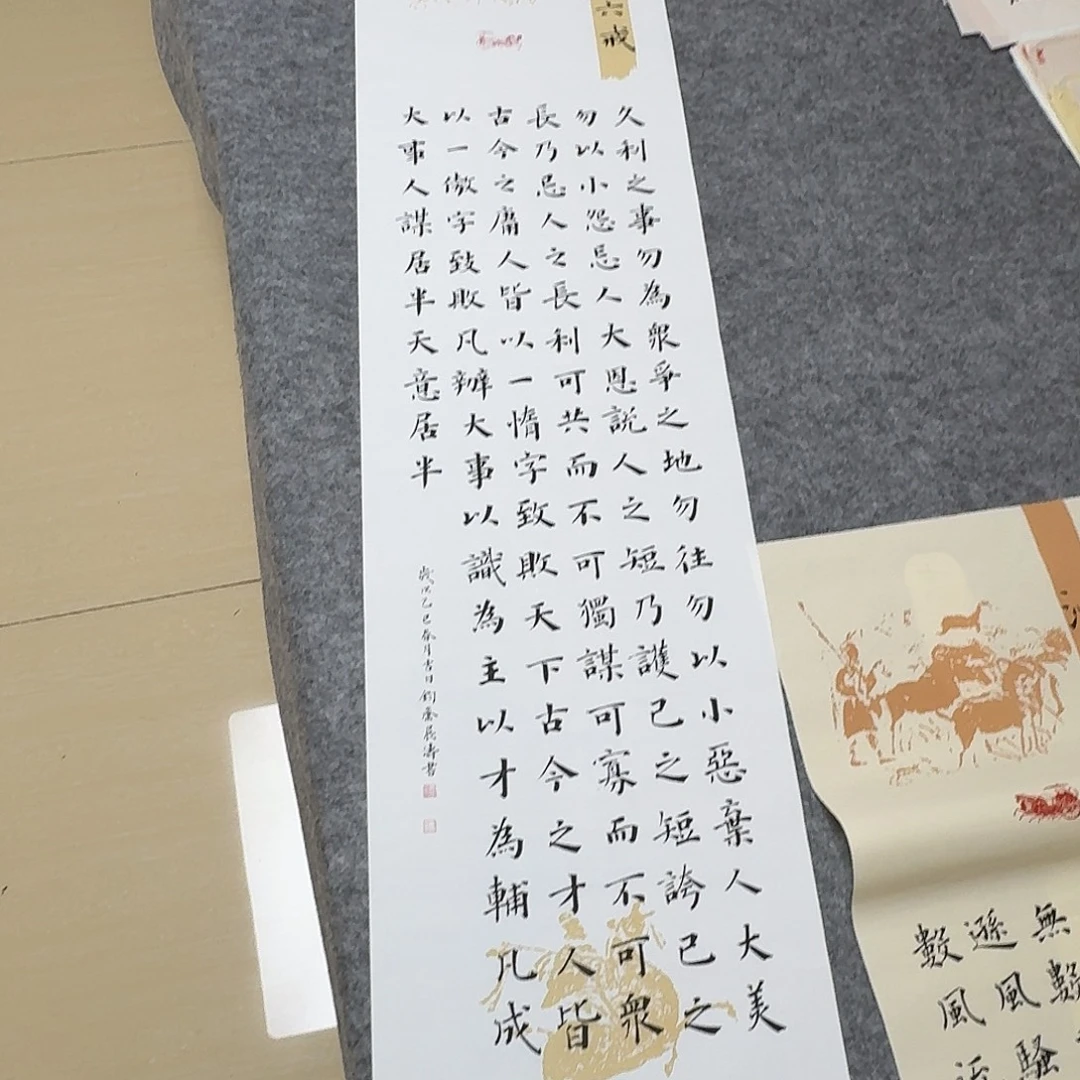 六戒
久利之事勿為衆爭之地勿往勿以小惡棄人大美
勿以小怨忌人大恩説人之短乃護己之短誇己之
長乃忌人之長利可共而不可獨謀可寡而不可衆
古今之庸人皆以一惰字致敗天下古今之才人皆
以一傲字致敗凡辦大事以識為主以才為輔凡成
大事人謀居半天意居半
歲次乙巳春月吉日鈞齋晨濤書
無數
遜風騷
數風